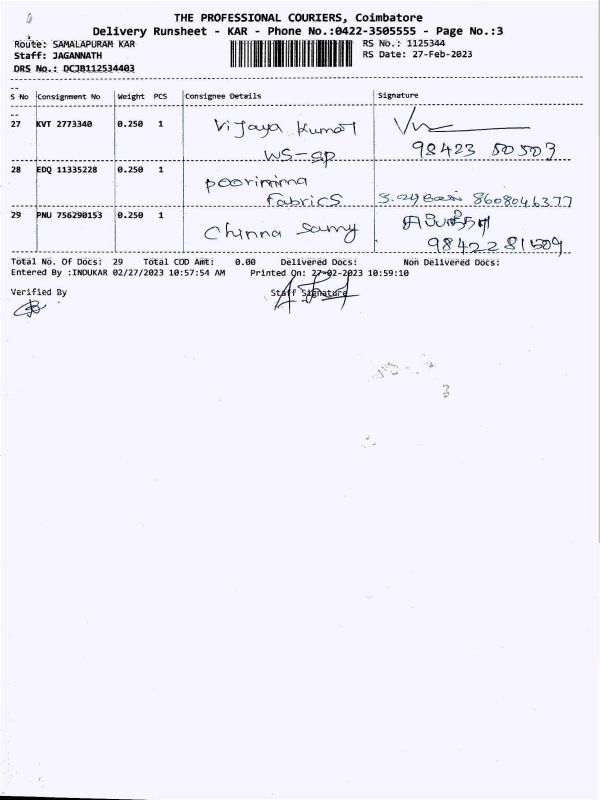 THE PROFESSIONAL COURIERS, Coimbatore
Delivery Runsheet - KAR - Phone No.:0422-3505555 - Page No.:3
Route: SAMALAPURAM KAR RS No.: 1125344
Staff: JAGANNATH RS Date: 27-Feb-2023
DRS No.: DCJB112534403
S No Consignment No Weight PCS Consignee Details Signature
27 KVT 2773340 0.250 1 Vijaya Kumar
WS-SP 98423 50509
28 EDQ 11335228 0.250 1 poorinima
Fabrics 8608046377
29 PNU 756290153 0.250 1 Chinna Samy
98422 81509
Total No. Of Docs: 29 Total COD Amt: 0.00 Delivered Docs: Non Delivered Docs:
Entered By :INDUKAR 02/27/2023 10:57:54 AM Printed On: 27-02-2023 10:59:10
Verified By Staff Signature